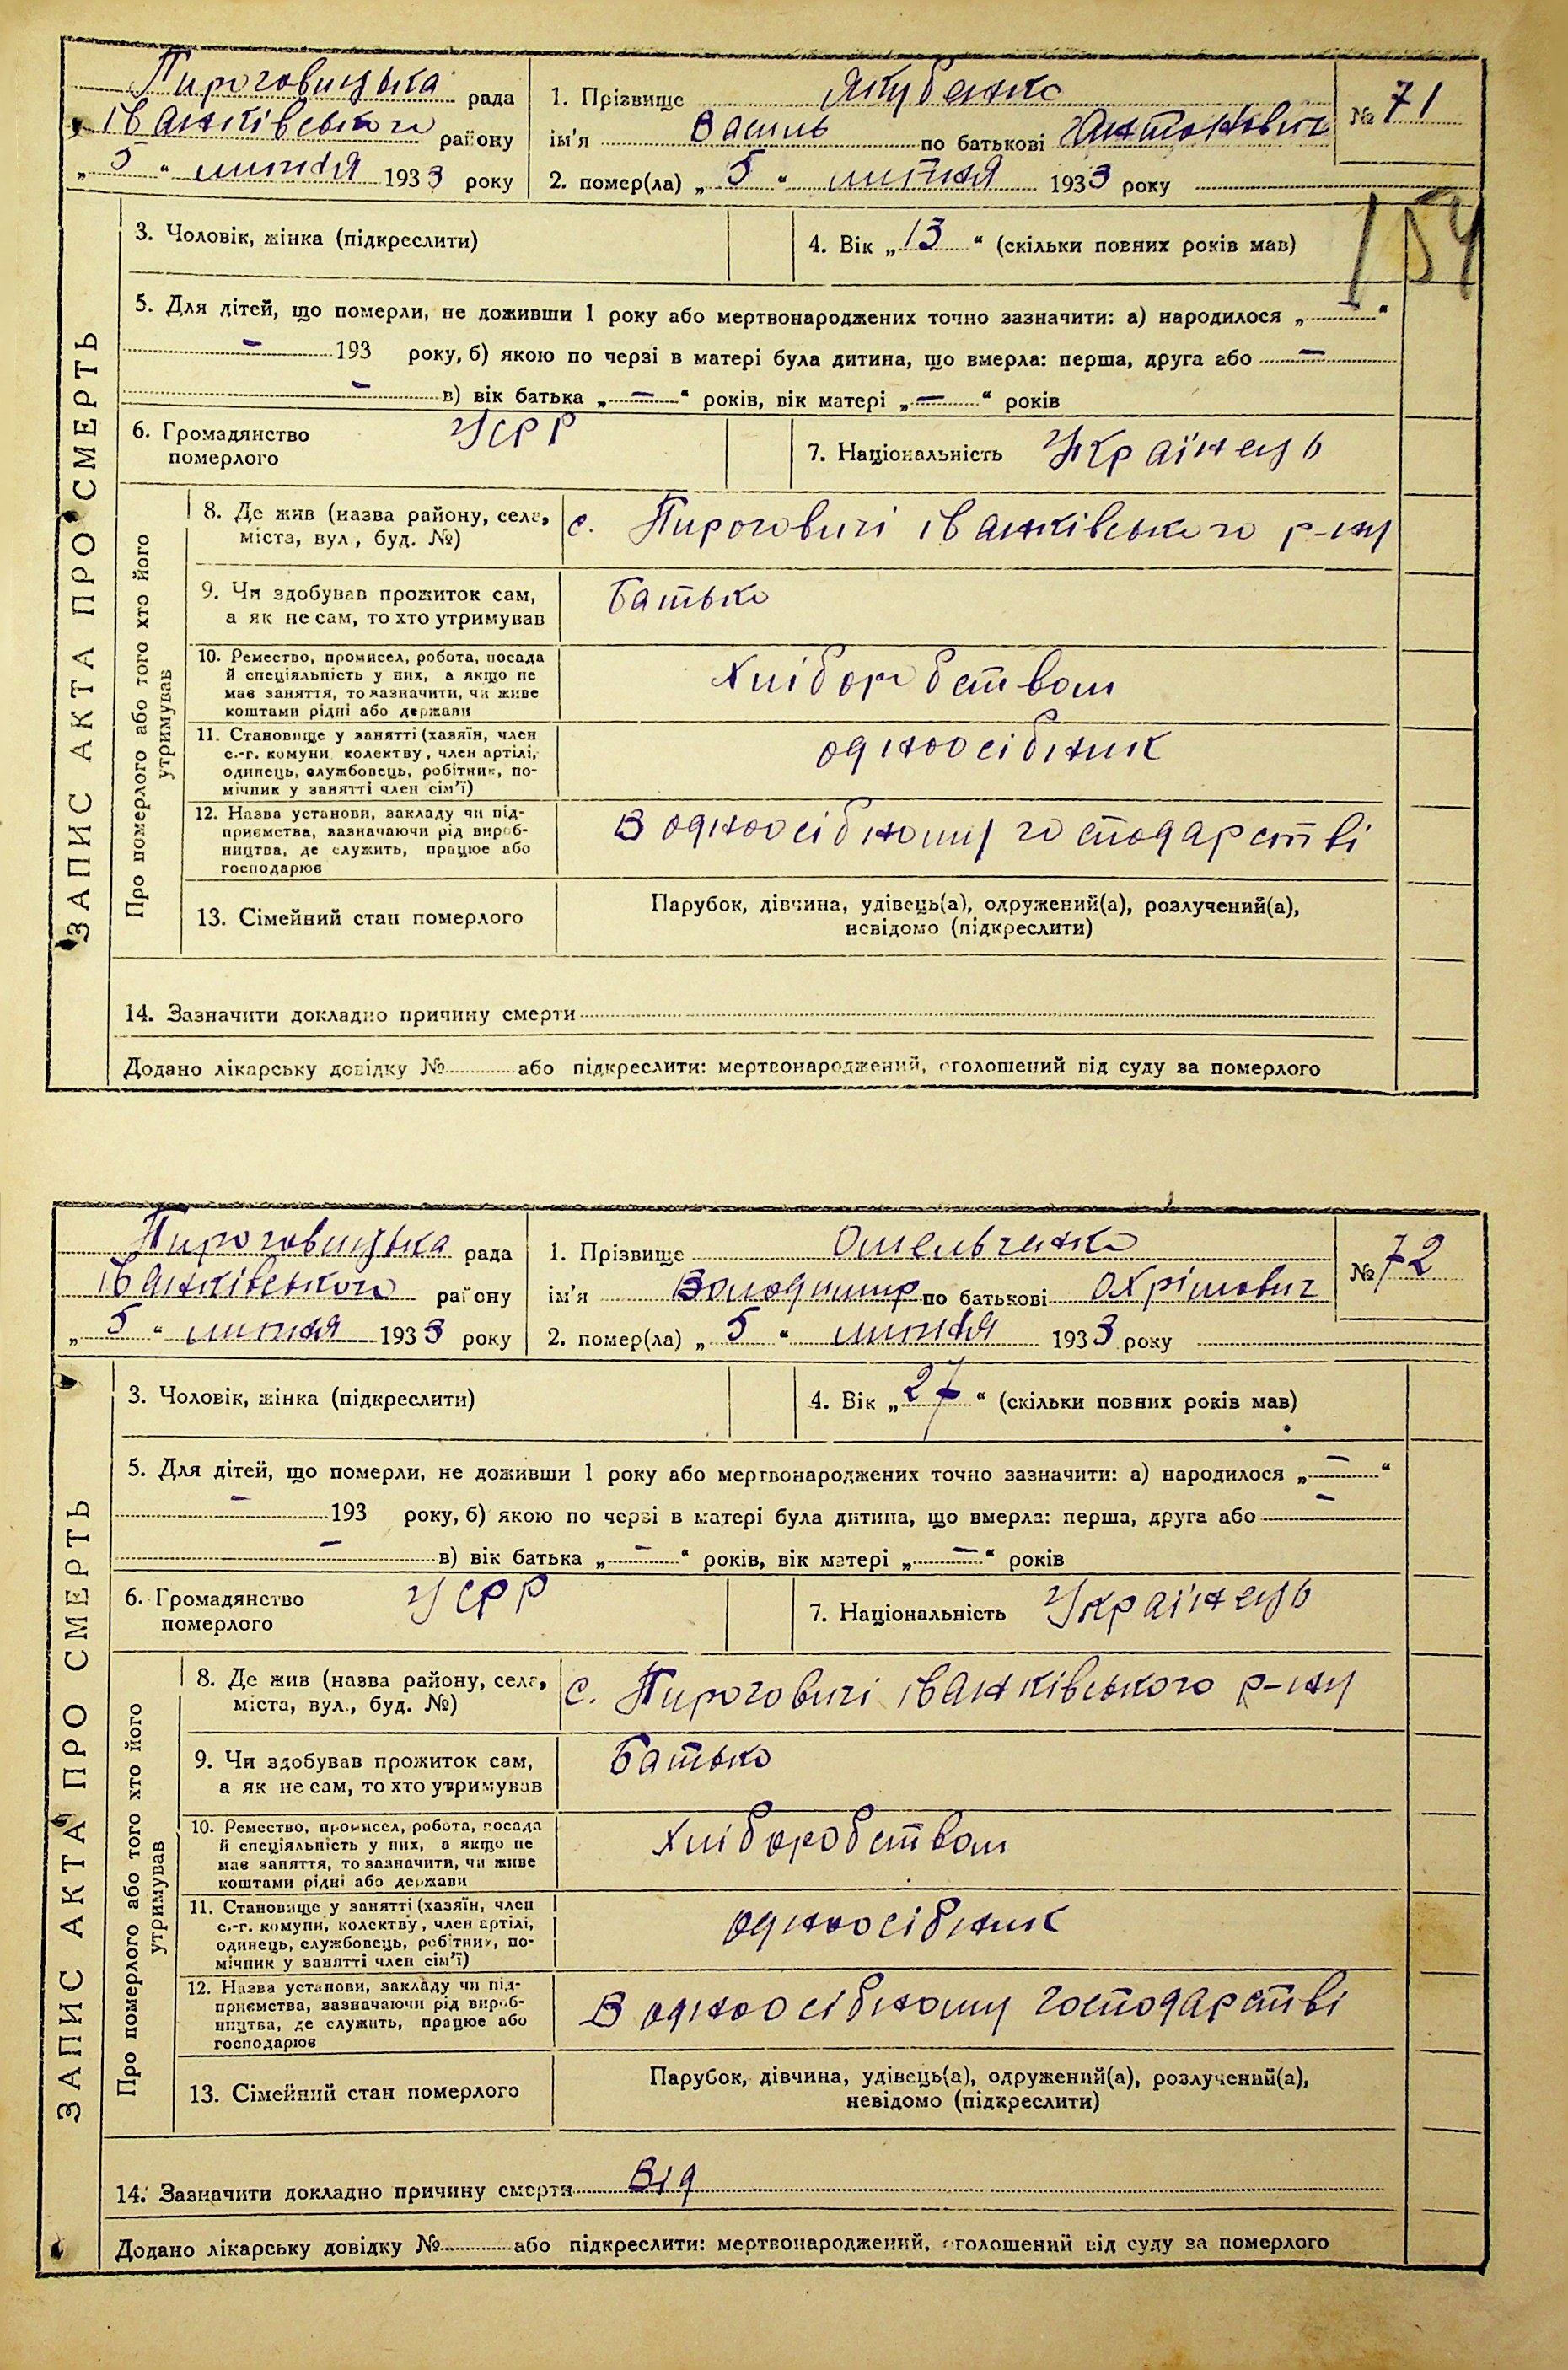 Пироговицька рада
Іванківського району
„ 5 “ липня 1933 року
1. Прізвище Якубенко
ім'я Василь по батькові Антонович
2. помер(ла) „ 5 “ липня 1933 року
№ 71
154
ЗАПИС АКТА ПРО СМЕРТЬ
3. Чоловік, жінка (підкреслити)
4. Вік „ 13 “ (скільки повних років мав)
5. Для дітей, що померли, не доживши 1 року або мертвонароджених точно зазначити: а) народилося „ — “
— 193 року, б) якою по черзі в матері була дитина, що вмерла: перша, друга або —
— в) вік батька „ — “ років, вік матері „ — “ років
6. Громадянство
померлого
УСРР
7. Національність Українець
Про померлого або того хто його
утримував
8. Де жив (назва району, села,
міста, вул., буд. №)
с. Пироговичі Іванківського р-ну
9. Чи здобував прожиток сам,
а як не сам, то хто утримував
Батько
10. Ремество, промисел, робота, посада
й спеціяльність у них, а якщо не
має заняття, то зазначити, чи живе
коштами рідні або держави
Хліборобством
11. Становище у занятті (хазяїн, член
с.-г. комуни, колективу, член артілі,
одинець, службовець, робітник, по-
мічник у занятті член сім'ї)
одноосібник
12. Назва установи, закладу чи під-
приємства, зазначаючи рід вироб-
ництва, де служить, працює або
господарює
В одноосібному господарстві
13. Сімейний стан померлого
Парубок, дівчина, удівець(а), одружений(а), розлучений(а),
невідомо (підкреслити)
14. Зазначити докладно причину смерти
Додано лікарську довідку № або підкреслити: мертвонароджений, оголошений від суду за померлого
Пироговицька рада
Іванківського району
„ 5 “ липня 1933 року
1. Прізвище Омельченко
ім'я Володимир по батькові Охрімович
2. помер(ла) „ 5 “ липня 1933 року
№ 72
ЗАПИС АКТА ПРО СМЕРТЬ
3. Чоловік, жінка (підкреслити)
4. Вік „ 27 “ (скільки повних років мав)
5. Для дітей, що померли, не доживши 1 року або мертвонароджених точно зазначити: а) народилося „ — “
— 193 року, б) якою по черзі в матері була дитина, що вмерла: перша, друга або —
— в) вік батька „ — “ років, вік матері „ — “ років
6. Громадянство
померлого
УСРР
7. Національність Українець
Про померлого або того хто його
утримував
8. Де жив (назва району, села,
міста, вул., буд. №)
с. Пироговичі Іванківського р-ну
9. Чи здобував прожиток сам,
а як не сам, то хто утримував
Батько
10. Ремество, промисел, робота, посада
й спеціяльність у них, а якщо не
має заняття, то зазначити, чи живе
коштами рідні або держави
Хліборобством
11. Становище у занятті (хазяїн, член
с.-г. комуни, колективу, член артілі,
одинець, службовець, робітник, по-
мічник у занятті член сім'ї)
одноосібник
12. Назва установи, закладу чи під-
приємства, зазначаючи рід вироб-
ництва, де служить, працює або
господарює
В одноосібному господарстві
13. Сімейний стан померлого
Парубок, дівчина, удівець(а), одружений(а), розлучений(а),
невідомо (підкреслити)
14. Зазначити докладно причину смерти Від
Додано лікарську довідку № або підкреслити: мертвонароджений, оголошений від суду за померлого